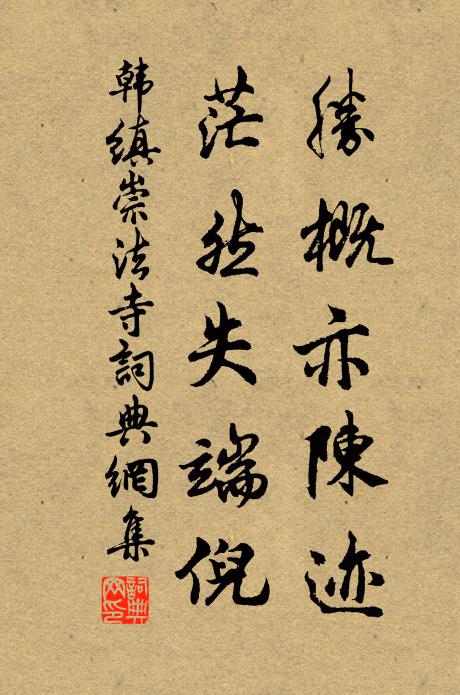 勝概亦陳迹
茫然失端倪
韩缜崇法寺詞典網集
詞典网印